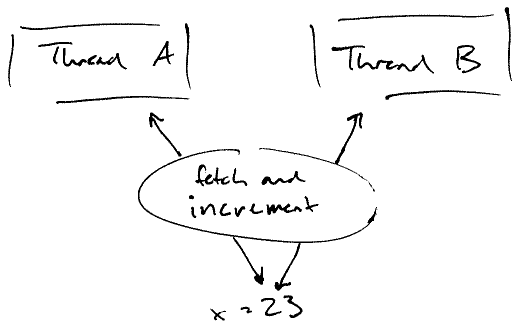 Thread A
Thread B
fetch and
increment
x = 23